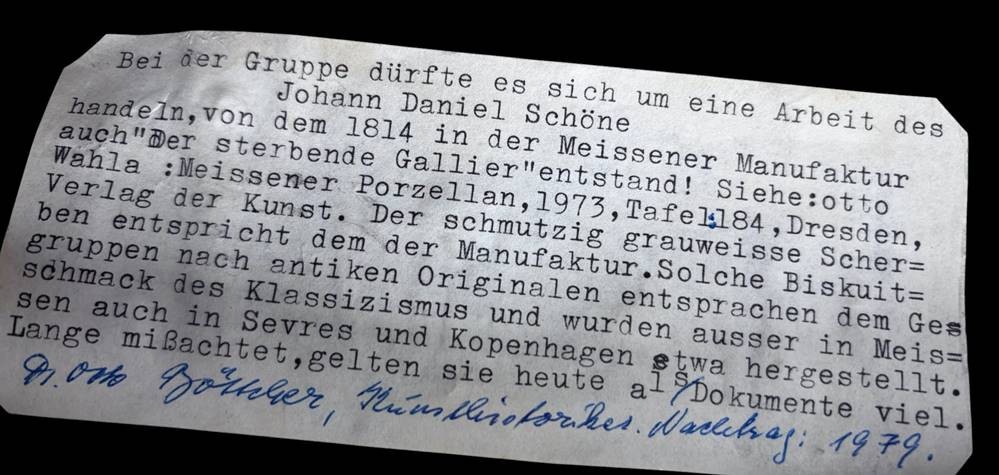 Bei der Gruppe dürfte es sich um eine Arbeit des
Johann Daniel Schöne
handeln,von dem 1814 in der Meissener Manufaktur
auch"Der sterbende Gallier"entstand! Siehe:otto
Wahla :Meissener Porzellan,1973,Tafel:184,Dresden,
Verlag der Kunst. Der schmutzig grauweisse Scher=
ben entspricht dem der Manufaktur.Solche Biskuit=
gruppen nach antiken Originalen entsprachen dem Ges
schmack des Klassizismus und wurden ausser in Meis=
sen auch in Sevres und Kopenhagen etwa hergestellt.
Lange mißachtet,gelten sie heute als/Dokumente viel.
Dr. Otto Böttcher, Kunsthistoriker. Nachtrag: 1979.